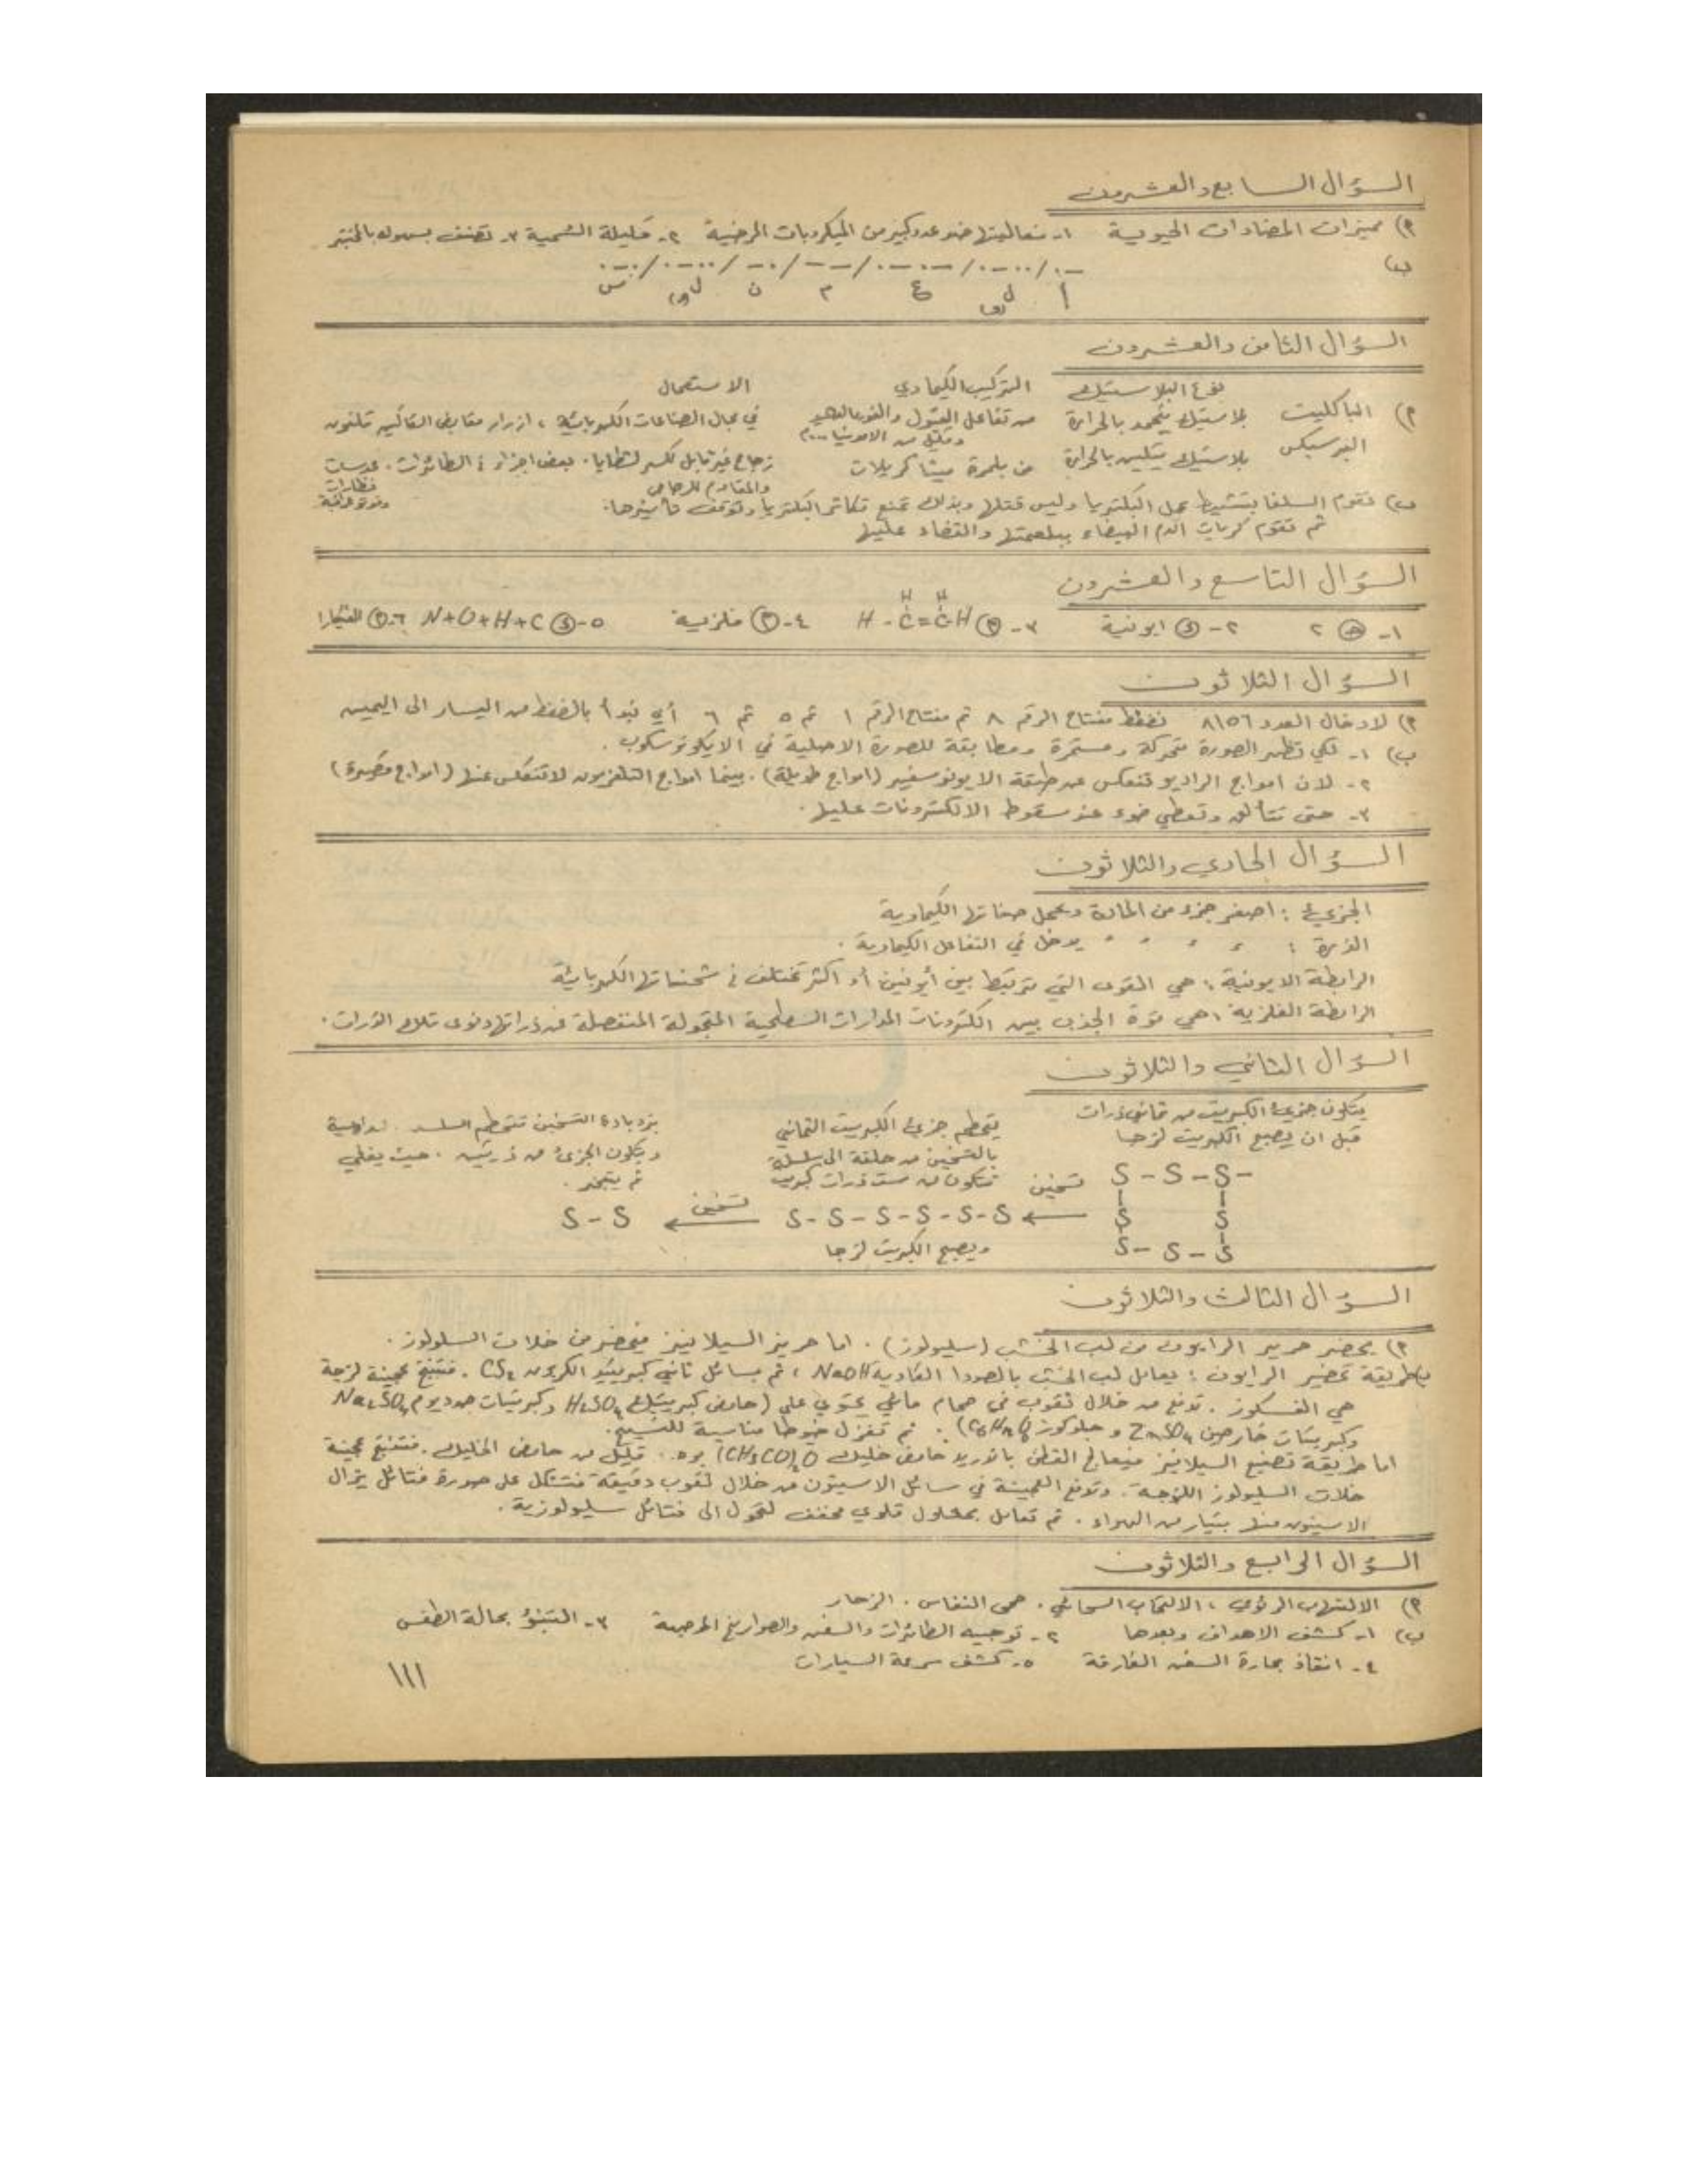 السؤال السابع والعشرون
أ) مميزات المضادات الحيوية ١- فعاليتها ضد عدد كبير من الميكروبات المرضية ٢- قليلة السمية ٣- تصنف بسهولة بالمختبر
ب)
السؤال الثامن والعشرون
نوع البلاستيك التركيب الكيماوي الاستعمال
أ) الباكليت بلاستيك يتجمد بالحرارة من تفاعل الفينول والفورمالدهيد في مجال الصناعات الكهربائية، ازرار مقابض السكاكين تلفون
وقليل من الامونيا
البرسبكس بلاستيك يتلين بالحرارة من بلمرة ميتا كريلات زجاج غير قابل للكسر لشظايا. بعض اجزاء الطائرات. عدسات
والمقاوم للرصاص نظارات
ب) تقوم السلفا بتثبيط عمل البكتريا وليس قتلها وبذلك تمنع تكاثر البكتريا وتوقف تأثيرها.
ثم تقوم كريات الدم البيضاء ببلعمتها والقضاء عليها
السؤال التاسع والعشرون
١- ٢ ٢- ايونية ٣- H - C = C - H ٤- فلزية ٥- N+O+H+C ٦-
H H
السؤال الثلاثون
أ) لادخال العدد ٨١٥٦ نضغط مفتاح الرقم ٨ ثم مفتاح الرقم ١ ثم ٥ ثم ٦ أي نبدأ بالضغط من اليسار الى اليمين
ب) ١- لكي تظهر الصورة متحركة ومستمرة ومطابقة للصورة الاصلية في الايكونوسكوب.
٢- لان امواج الراديو تنعكس عن طبقة الايونوسفير (امواج طويلة). بينما امواج التلفزيون لا تنعكس عنها (امواج قصيرة)
٣- حتى تتألق وتعطي ضوء عند سقوط الالكترونات عليها.
السؤال الحادي والثلاثون
الجزيء: اصغر جزء من المادة ويحمل صفاتها الكيماوية
الذرة: " " " " يدخل في التفاعل الكيماوية.
الرابطة الايونية: هي القوى التي تربط بين أيونين أو اكثر تختلف في شحناتها الكهربائية
الرابطة الفلزية: هي قوة الجذب بين الكترونات المدارات السطحية المتجولة المنفصلة عن ذراتها ونوى تلك الذرات.
السؤال الثاني والثلاثون
يتكون جزيء الكبريت من ثماني ذرات يتحطم جزيء الكبريت الثماني بزيادة التسخين تتحطم السلسلة السداسية
قبل ان يصبح الكبريت لزجا بالتسخين من حلقة الى سلسلة ويتكون الجزيء من ذرتين. حيث يغلي
تتكون من ست ذرات كبريت ثم يتبخر.
S - S - S - تسخين
S S ← S - S - S - S - S - S تسخين ← S - S
S - S - S ويصبح الكبريت لزجا
السؤال الثالث والثلاثون
أ) يحضر حرير الرايون من لب الخشب (سليولوز). اما حرير السيلانيز فيحضر من خلات السلولوز.
ب) طريقة تحضير الرايون: يعامل لب الخشب بالصودا الكاوية NaOH، ثم بسائل ثاني كبريتيد الكربون CS₂. فتنتج عجينة لزجة
هي الفسكوز. تدفع من خلال ثقوب في حمام مائي يحتوي على (حامض كبريتيك H₂SO₄ وكبريتات صوديوم Na₂SO₄
وكبريتات خارصين ZnSO₄ و جلوكوز). ثم تغزل خيوطا مناسبة للنسيج.
اما طريقة تصنيع السيلانيز فيعالج القطن باندريد حامض خليك (CH₃CO)₂O بوجود قليل من حامض الخليك. فتنتج عجينة
خلات السليولوز اللزجة. وتدفع العجينة في سائل الاسيتون من خلال ثقوب دقيقة فتتشكل على صورة فتائل يزال
الاسيتون منها بتيار من الهواء. ثم تعامل بمحلول قلوي مخفف لتحول الى فتائل سليولوزية.
السؤال الرابع والثلاثون
أ) الالتهاب الرئوي، الالتهاب السحائي. حمى النفاس. الزحار
ب) ١- كشف الاهداف وبعدها ٢- توجيه الطائرات والسفن والصواريخ الموجهة ٣- التنبؤ بحالة الطقس
٤- انقاذ بحارة السفن الغارقة ٥- كشف سرعة السيارات
١١١